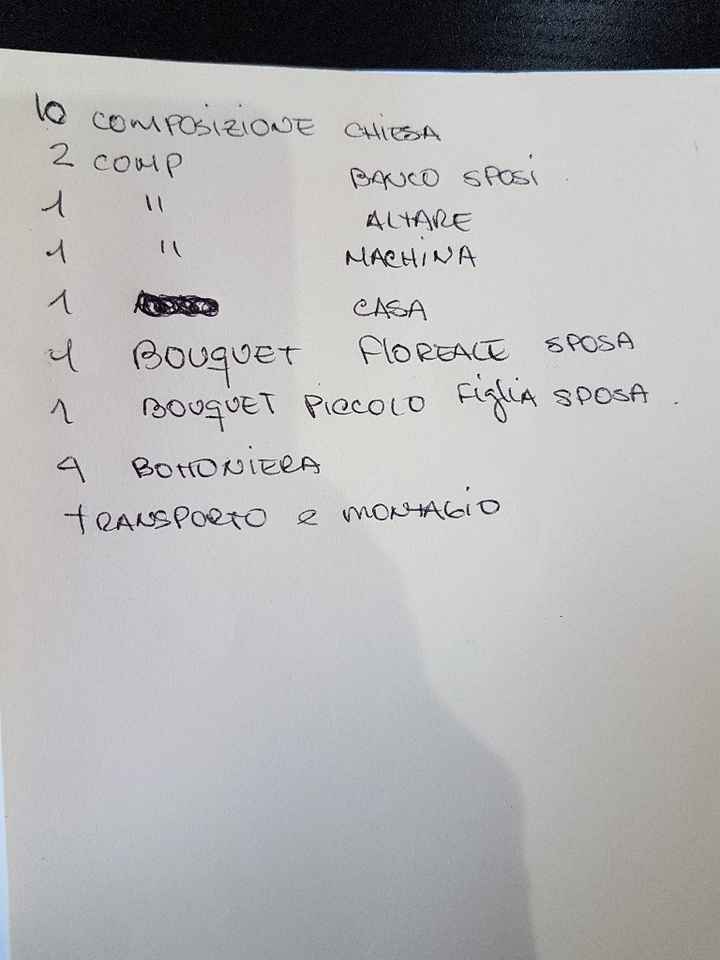 10 COMPOSIZIONE CHIESA
2 COMP BANCO SPOSI
1 " ALTARE
1 " MACHINA
1 CASA
1 BOUQUET FLOREALE SPOSA
1 BOUQUET PICCOLO FIGLIA SPOSA.
4 BOTTONIERA
TRANSPORTO e MONTAGIO